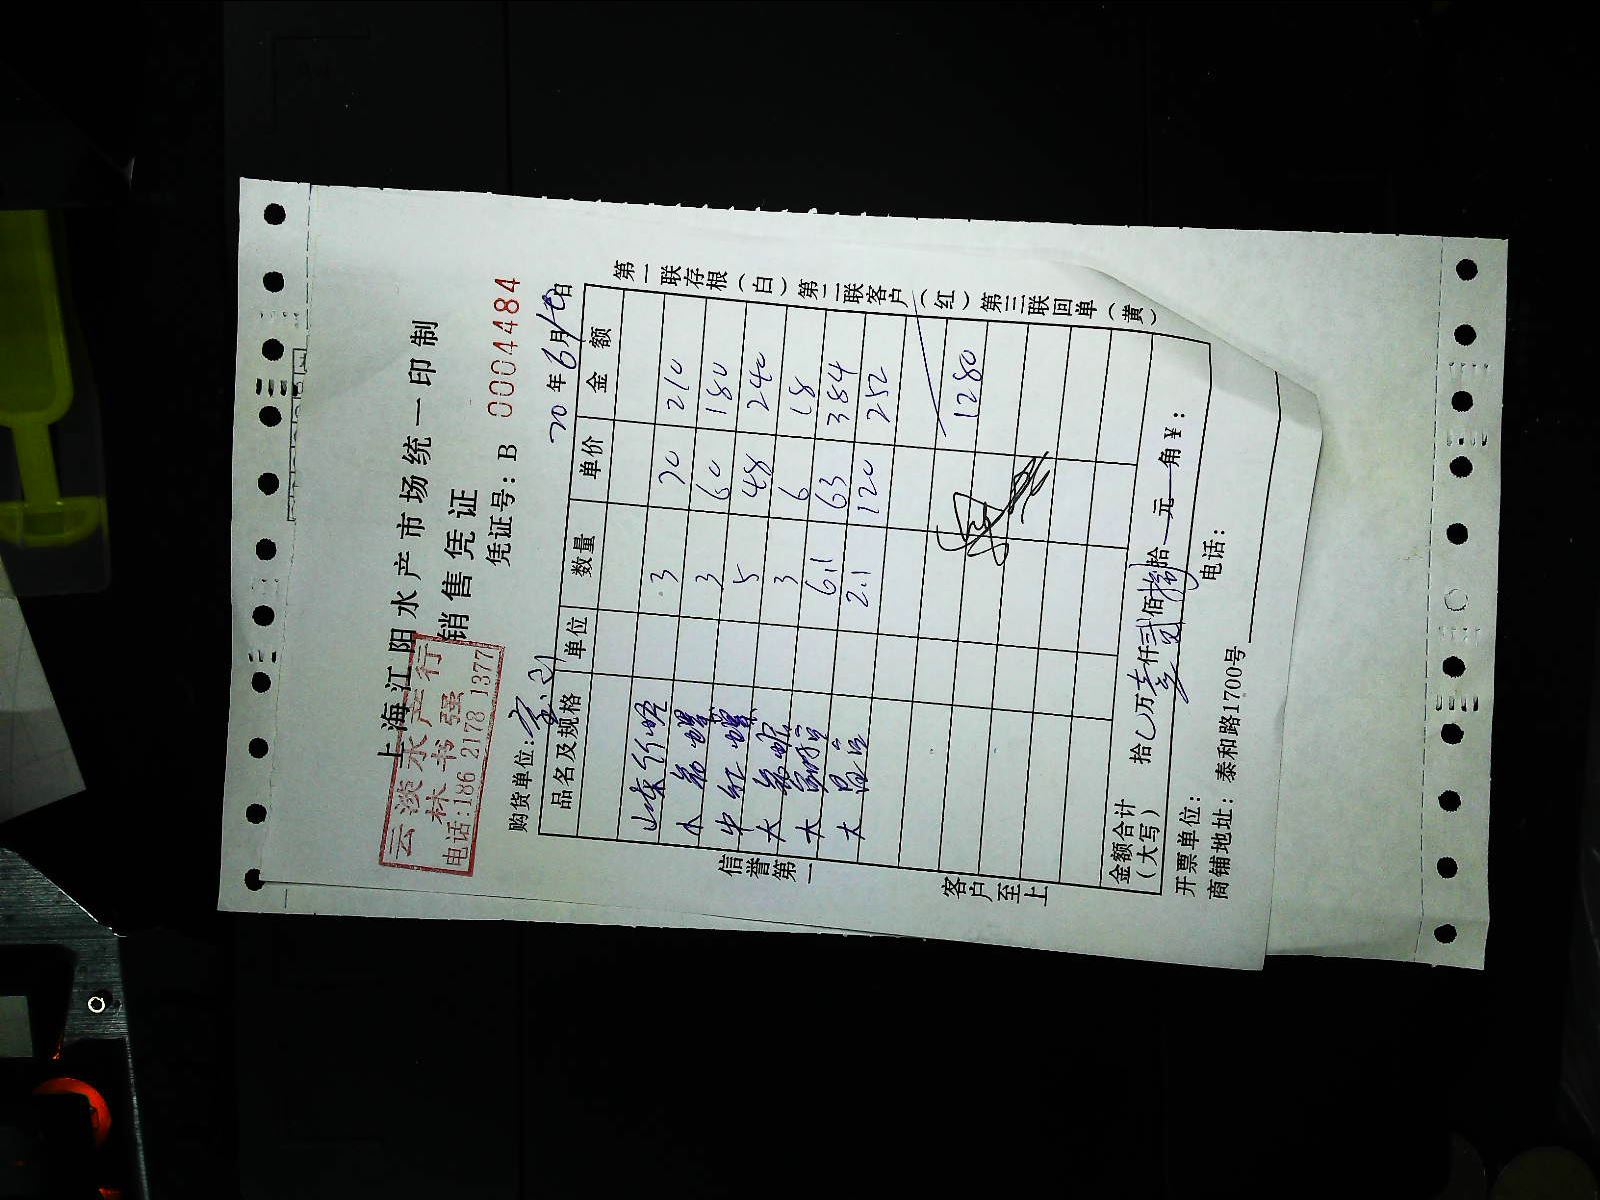 上海江阳水产市场统一印制
销售凭证
云淡水产行
林书强
电话:186 2178 1377
凭证号: B 0004484
购货单位:
20年6月 日
品名及规格 单位 数量 单价 金额
3 70 210
小 螺 3 60 180
中红螺 5 48 240
大 3 6 18
大 6.1 63 384
大 2.1 120 252
1280
金额合计
(大写)
拾 万 仟 佰 拾 元 角 ¥:
开票单位: 电话:
商铺地址: 泰和路1700号
信誉第一
客户至上
第一联存根(白)第二联客户(红)第三联回单(黄)